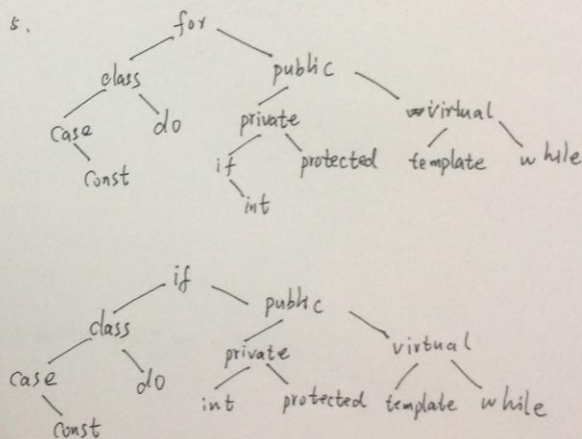 5.
for
class public
case do private virtual
const if protected template while
int
if
class public
case do private virtual
const int protected template while